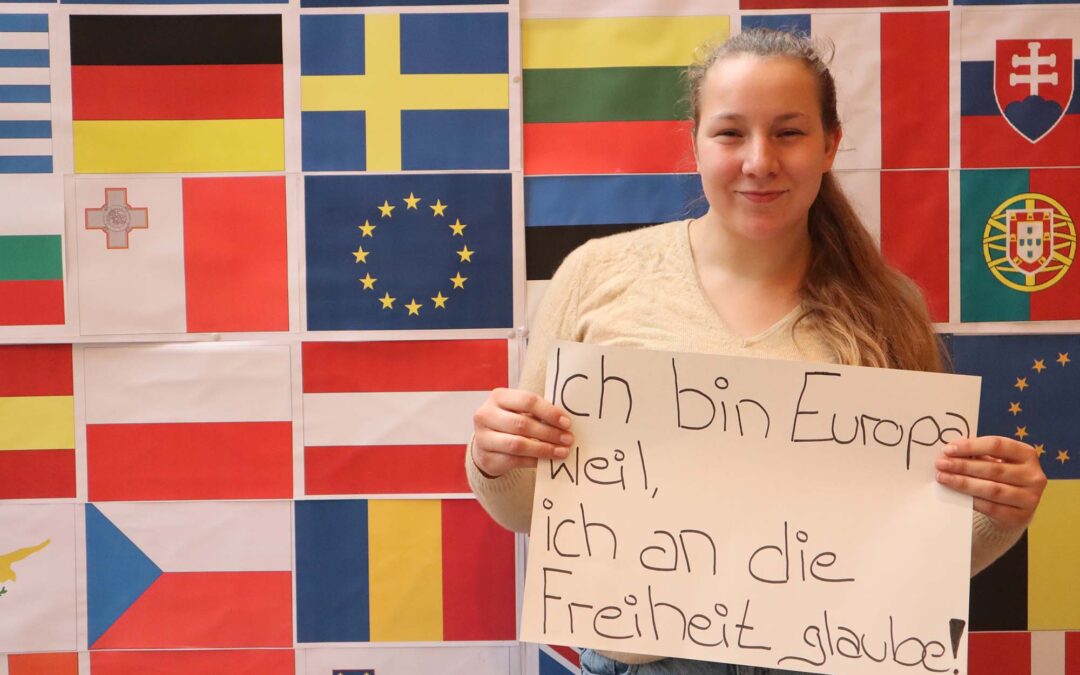 Ich bin Europa
weil,
ich an die
Freiheit glaube!